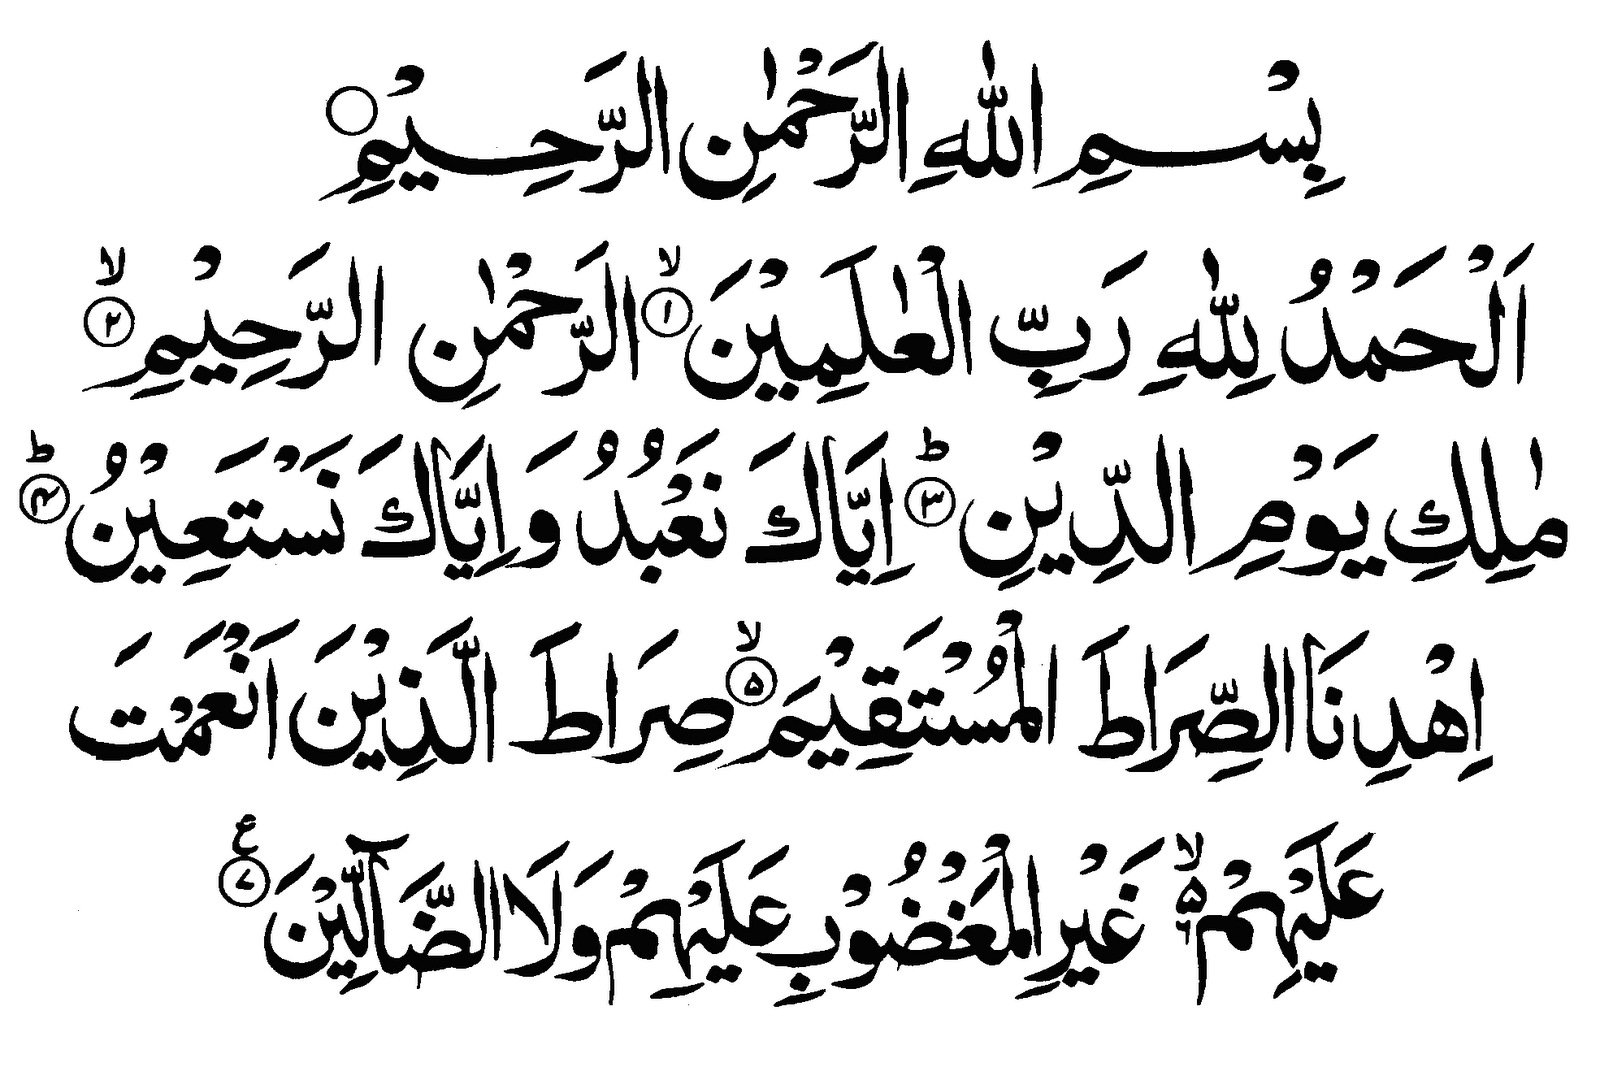 بِسْمِ اللّٰهِ الرَّحْمٰنِ الرَّحِيْمِ ○
اَلْحَمْدُ لِلّٰهِ رَبِّ الْعٰلَمِيْنَ ۙ﴿۱﴾ الرَّحْمٰنِ الرَّحِيْمِ ۙ﴿۲﴾
مٰلِكِ يَوْمِ الدِّيْنِ ؕ﴿۳﴾ اِيَّاكَ نَعْبُدُ وَ اِيَّاكَ نَسْتَعِيْنُ ؕ﴿۴﴾
اِهْدِنَا الصِّرَاطَ الْمُسْتَقِيْمَ ۙ﴿۵﴾ صِرَاطَ الَّذِيْنَ اَنْعَمْتَ
عَلَيْهِمْ ۙ۵ ۶ غَيْرِ الْمَغْضُوْبِ عَلَيْهِمْ وَلَا الضَّآلِّيْنَ ﴿۷﴾ ع